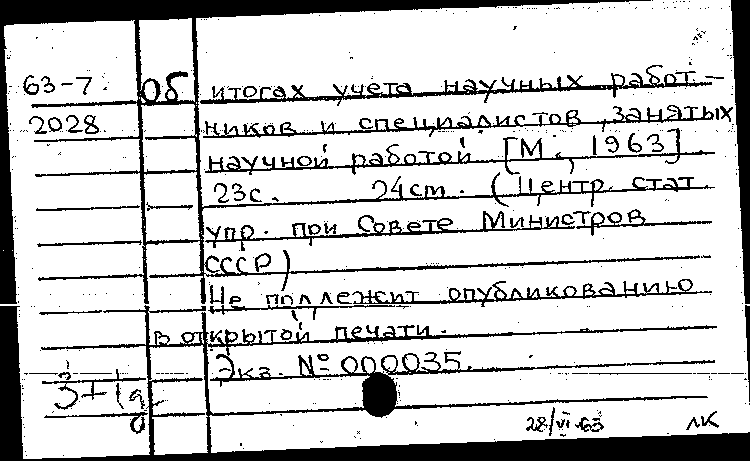 63-7. Об итогах учета научных работ-
2028 ников и специалистов, занятых
научной работой. [М., 1963].
23с. 24см. (Центр. стат.
упр. при Совете Министров
СССР)
Не подлежит опубликованию
в открытой печати.
Экз. № 000035.
28/VI-63 ЛК